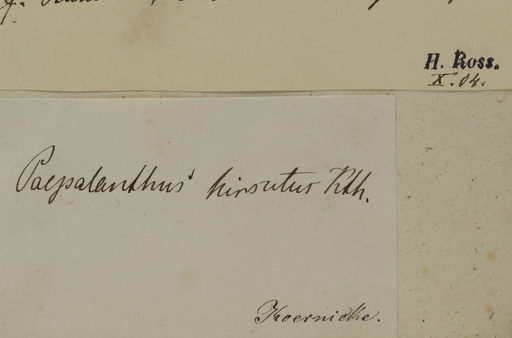 H. Ross.
X. 04.
Paepalanthus hirsutus Kth.
Koernicke.